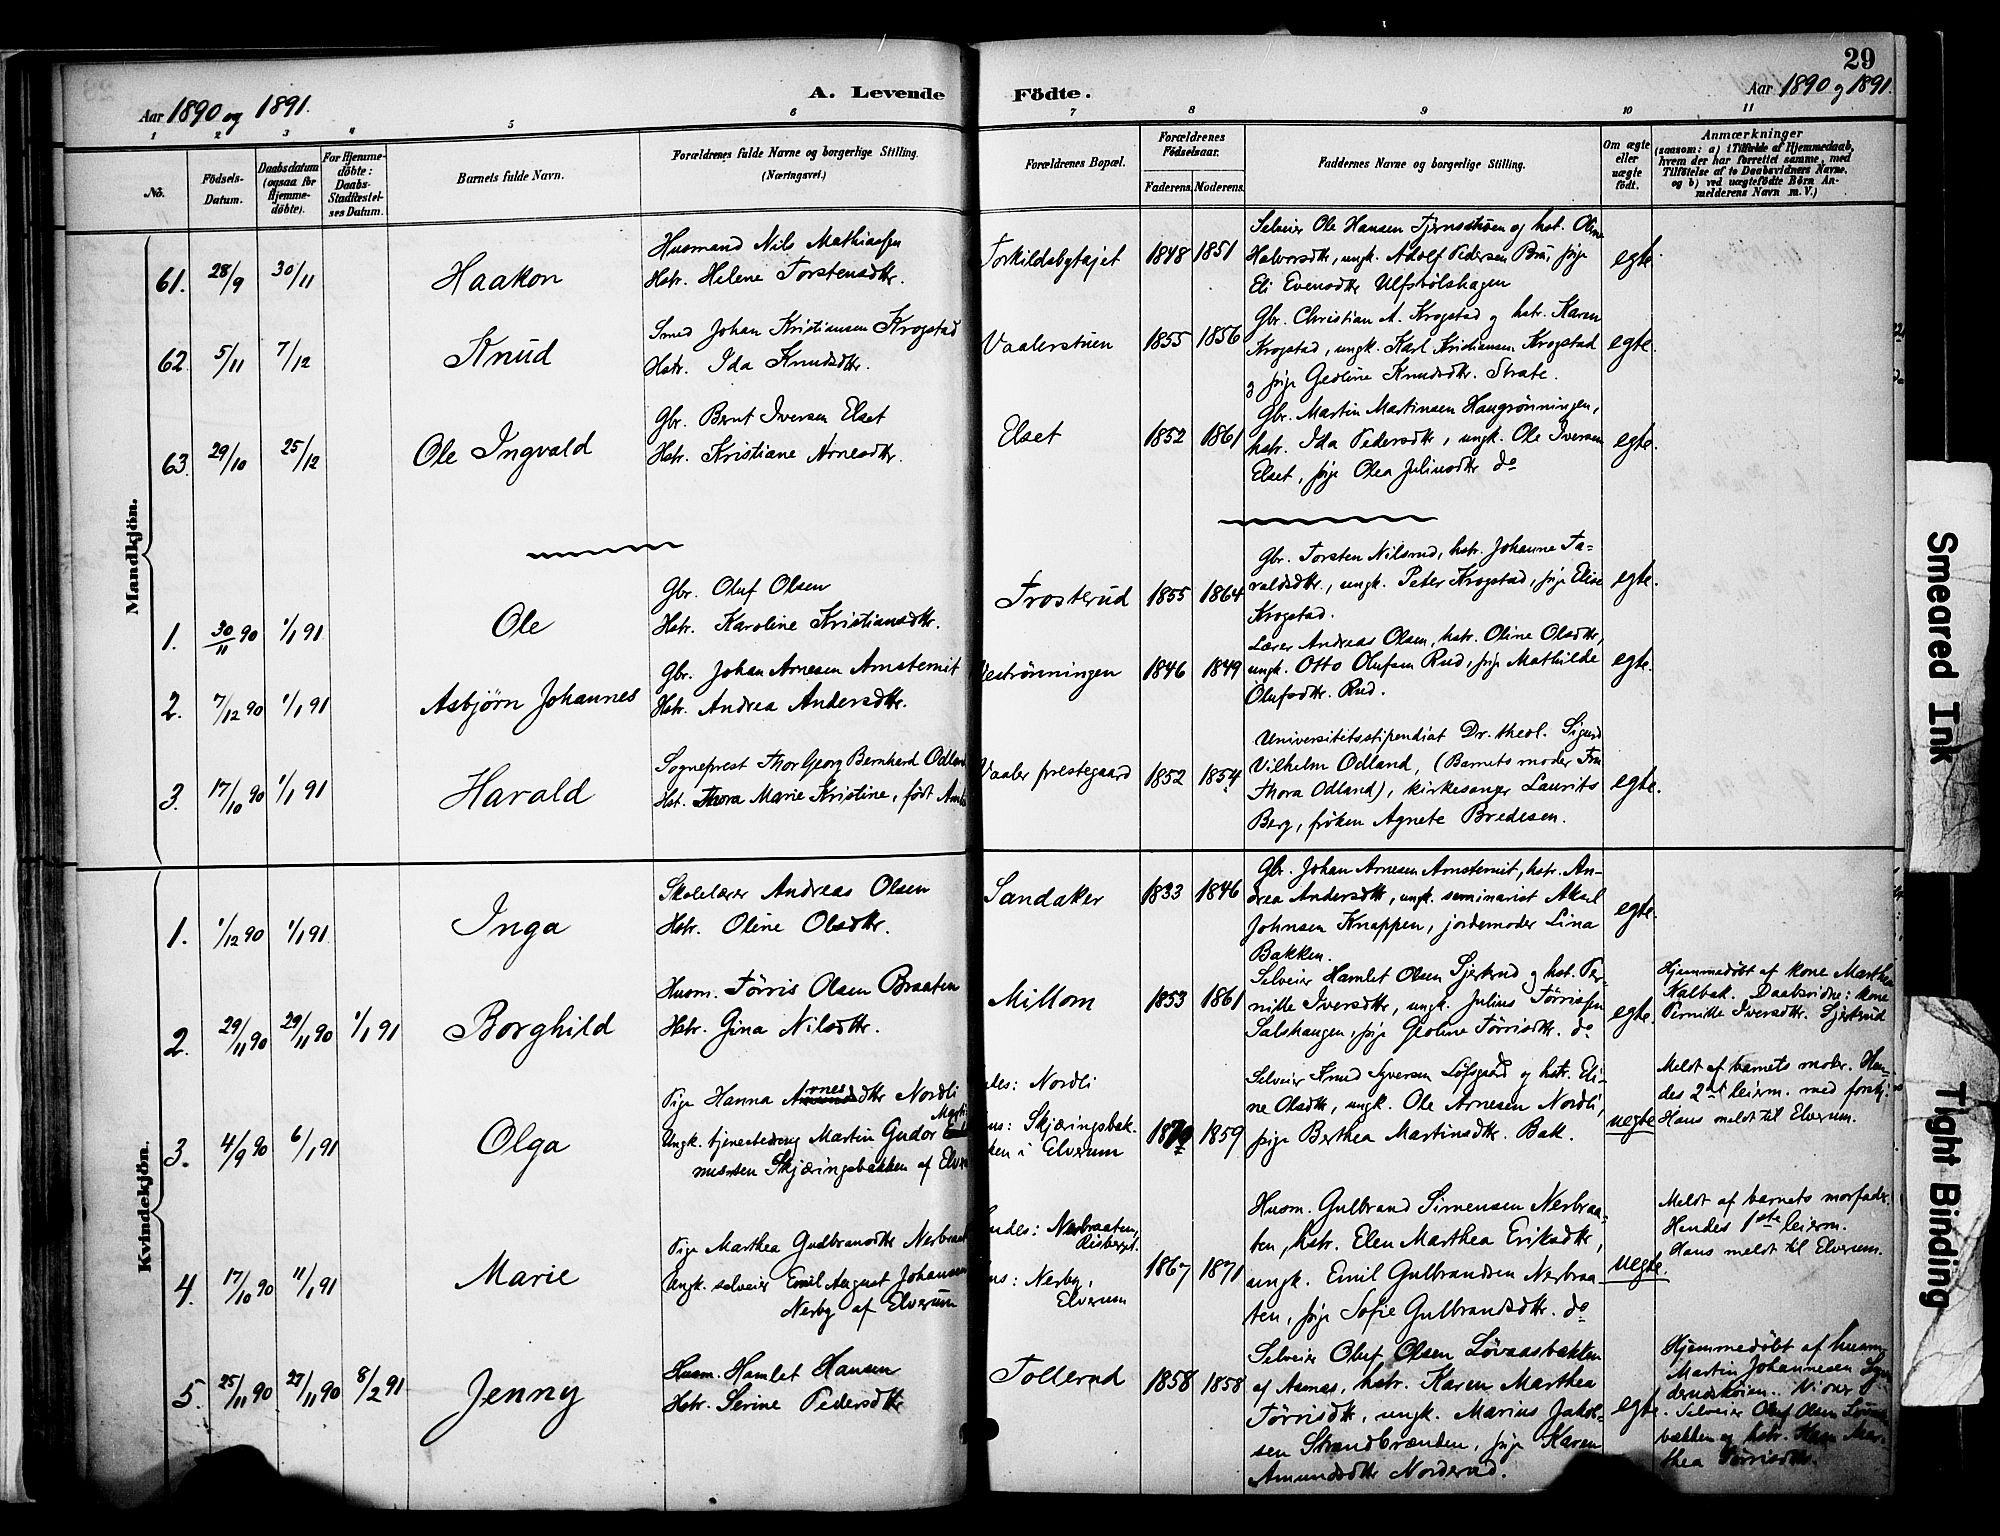 29
Aar 1890 og 1891.
A. Levende Födte.
Aar 1890 og 1891.
1 2 3 4 5 6 7 8 9 10 11
No.
Födsels-Datum.
Daabsdatum (ogsaa for Hjemme-döbte).
For Hjemme-döbte: Daabs-Stadfæstel-ses Datum.
Barnets fulde Navn.
Forældrenes fulde Navne og borgerlige Stilling. (Næringsvei.)
Forældrenes Bopæl.
Forældrenes Födselsaar.
Faderens. Moderens.
Faddernes Navne og borgerlige Stilling.
Om ægte eller uægte födt.
Anmærkninger
(saasom: a) i Tilfælde af Hjemmedaab, hvem der har forrettet samme, med Tilföielse af to Daabsvidners Navne. og b) ved uægtefödte Börn An-melderens Navn m. V.)
Mandkjön.
61. 28/9 30/11 Haakon
Husmand Nils Mathiassen
Hstr. Helene Torstensdtr.
Torkildsbytajet 1848 1851
Selveier Ole Hansen Tjernsstuen og hst. Oline
Halvorsdtr, ungk. Adolf Pedersen Bru, pige
Eli Evensdtr Ulfsbölshagen
egte.
62. 5/11 7/12 Knud
Smed Johan Kristiansen Krogstad
Hstr. Ida Knudsdtr.
Vaalerstuen 1855 1856
Gbr. Christian A. Krogstad og hstr. Karen
Krogstad, ungk. Karl Kristiansen Krogstad
og pige Geoline Knudsdtr. Strate.
egte.
63. 29/10 25/12 Ole Ingvald
Gbr. Bernt Iversen Elset
Hstr. Kristiane Arnesdtr.
Elset 1852 1861
Gbr. Martin Martinsen Haugrønningen,
hstr. Ida Pedersdtr, ungk. Ole Iversen
Elset, pige Olea Juliusdtr do
egte.
1. 30/11 90 1/1 91 Ole
Gbr. Oluf Olsen
Hstr. Karoline Kristiansdtr.
Trosterud 1855 1864
Gbr. Torsten Nilsrud, hstr. Johanne Ta-
raldsdtr, ungk. Peter Krogstad, pige Elise
Krogstad.
egte.
2. 7/12 90 1/1 91 Asbjørn Johannes
Gbr. Johan Arnesen Arnstemit
Hstr. Andrea Andersdtr.
Vestrønningen 1846 1849
Lærer Andreas Olsen, hstr. Oline Olsdtr,
ungk. Otto Olufsen Rud, pige Mathilde
Olufsdtr. Rud.
egte.
3. 17/10 90 1/1 91 Harald
Sogneprest Thor Georg Bernhard Odland
Hst. Thora Marie Kristine, født
Vaaler prestegaard 1852 1854
Universitetsstipendiat Dr. theol. Sigurd
Vilhelm Odland, (Barnets moder Fru
Thora Odland), kirkesanger Laurits
Berg, frøken Agnete Bredesen.
egte.
Kvindekjön.
1. 1/12 90 1/1 91 Inga
Skolelærer Andreas Olsen
Hstr. Oline Olsdtr.
Sandaker 1833 1846
Gbr. Johan Arnesen Arnstemit, hstr. An-
drea Andersdtr, ungk. seminarist Aksel
Johnsen Knappen, jordemoder Lina
Bakken.
egte.
2. 29/11 90 29/11 90 1/1 91 Borghild
Husm. Tørris Olsen Braaten
Hstr. Gina Nilsdtr.
Millom 1853 1861
Selveier Hamlet Olsen Sjertrud og hst. Per-
nille Iversdtr, ungk. Julius Tørrissen
Salshaugen, pige Geoline Tørrisdtr. do
egte.
Hjemmedøbt af kone Marthea
Kalbak. Daabsvidne: kone
Pernille Iversdtr. Sjertrud
3. 4/9 90 6/1 91 Olga
Pige Hanna Arnesdtr Nordli
Ungk. tjenestedreng Martin Gudor Marti-
nussen Skjæringsbakken af Elverum
Hendes: Nordli
Hans: Skjæringsbak-
ken i Elverum
1870 1859
Selveier Knud Syversen Löfsgaard og hstr. Eli-
ne Olsdtr, ungk. Ole Arnesen Nordli,
pige Berthea Martinsdtr. Bak.
uegte
Meldt af barnets moder. Hen-
des 2det leierm. med forskj.
Hans meldt til Elverum.
4. 17/10 90 11/1 91 Marie
Pige Marthea Gudbransdtr Nerbraaten
Ungk. selveier Emil August Johansen
Nerby af Elverum
Hendes: Nerbraaten,
Risberget.
Hans: Nerby,
Elverum
1867 1871
Husm. Gulbrand Simensen Nerbraa-
ten, hstr. Elen Marthea Eriksdtr,
ungk. Emil Gulbrandsen Nerbraa-
ten, pige Sofie Gulbrandsdtr. do
uegte.
Meldt af barnets morfader.
Hendes 1ste leierm.
Hans meldt til Elverum.
5. 25/11 90 27/11 90 8/2 91 Jenny
Husm. Hamlet Hansen
Hstr. Serine Pedersdtr
Tollerud 1858 1858
Selveier Oluf Olsen Løvaasbakken
af Aasnes, hstr. Karen Marthea
Tørrisdtr, ungk. Marius Jakob-
sen Strandbrænden, pige Karen
Amundsdtr Norderud.
egte.
Hjemmedøbt af husm.
Martin Johannesen
Vidner
Selveier Oluf Olsen Løvaas-
bakken og hstr. Karen Mar-
thea Tørrisdtr.
Smeared Ink
Tight Binding